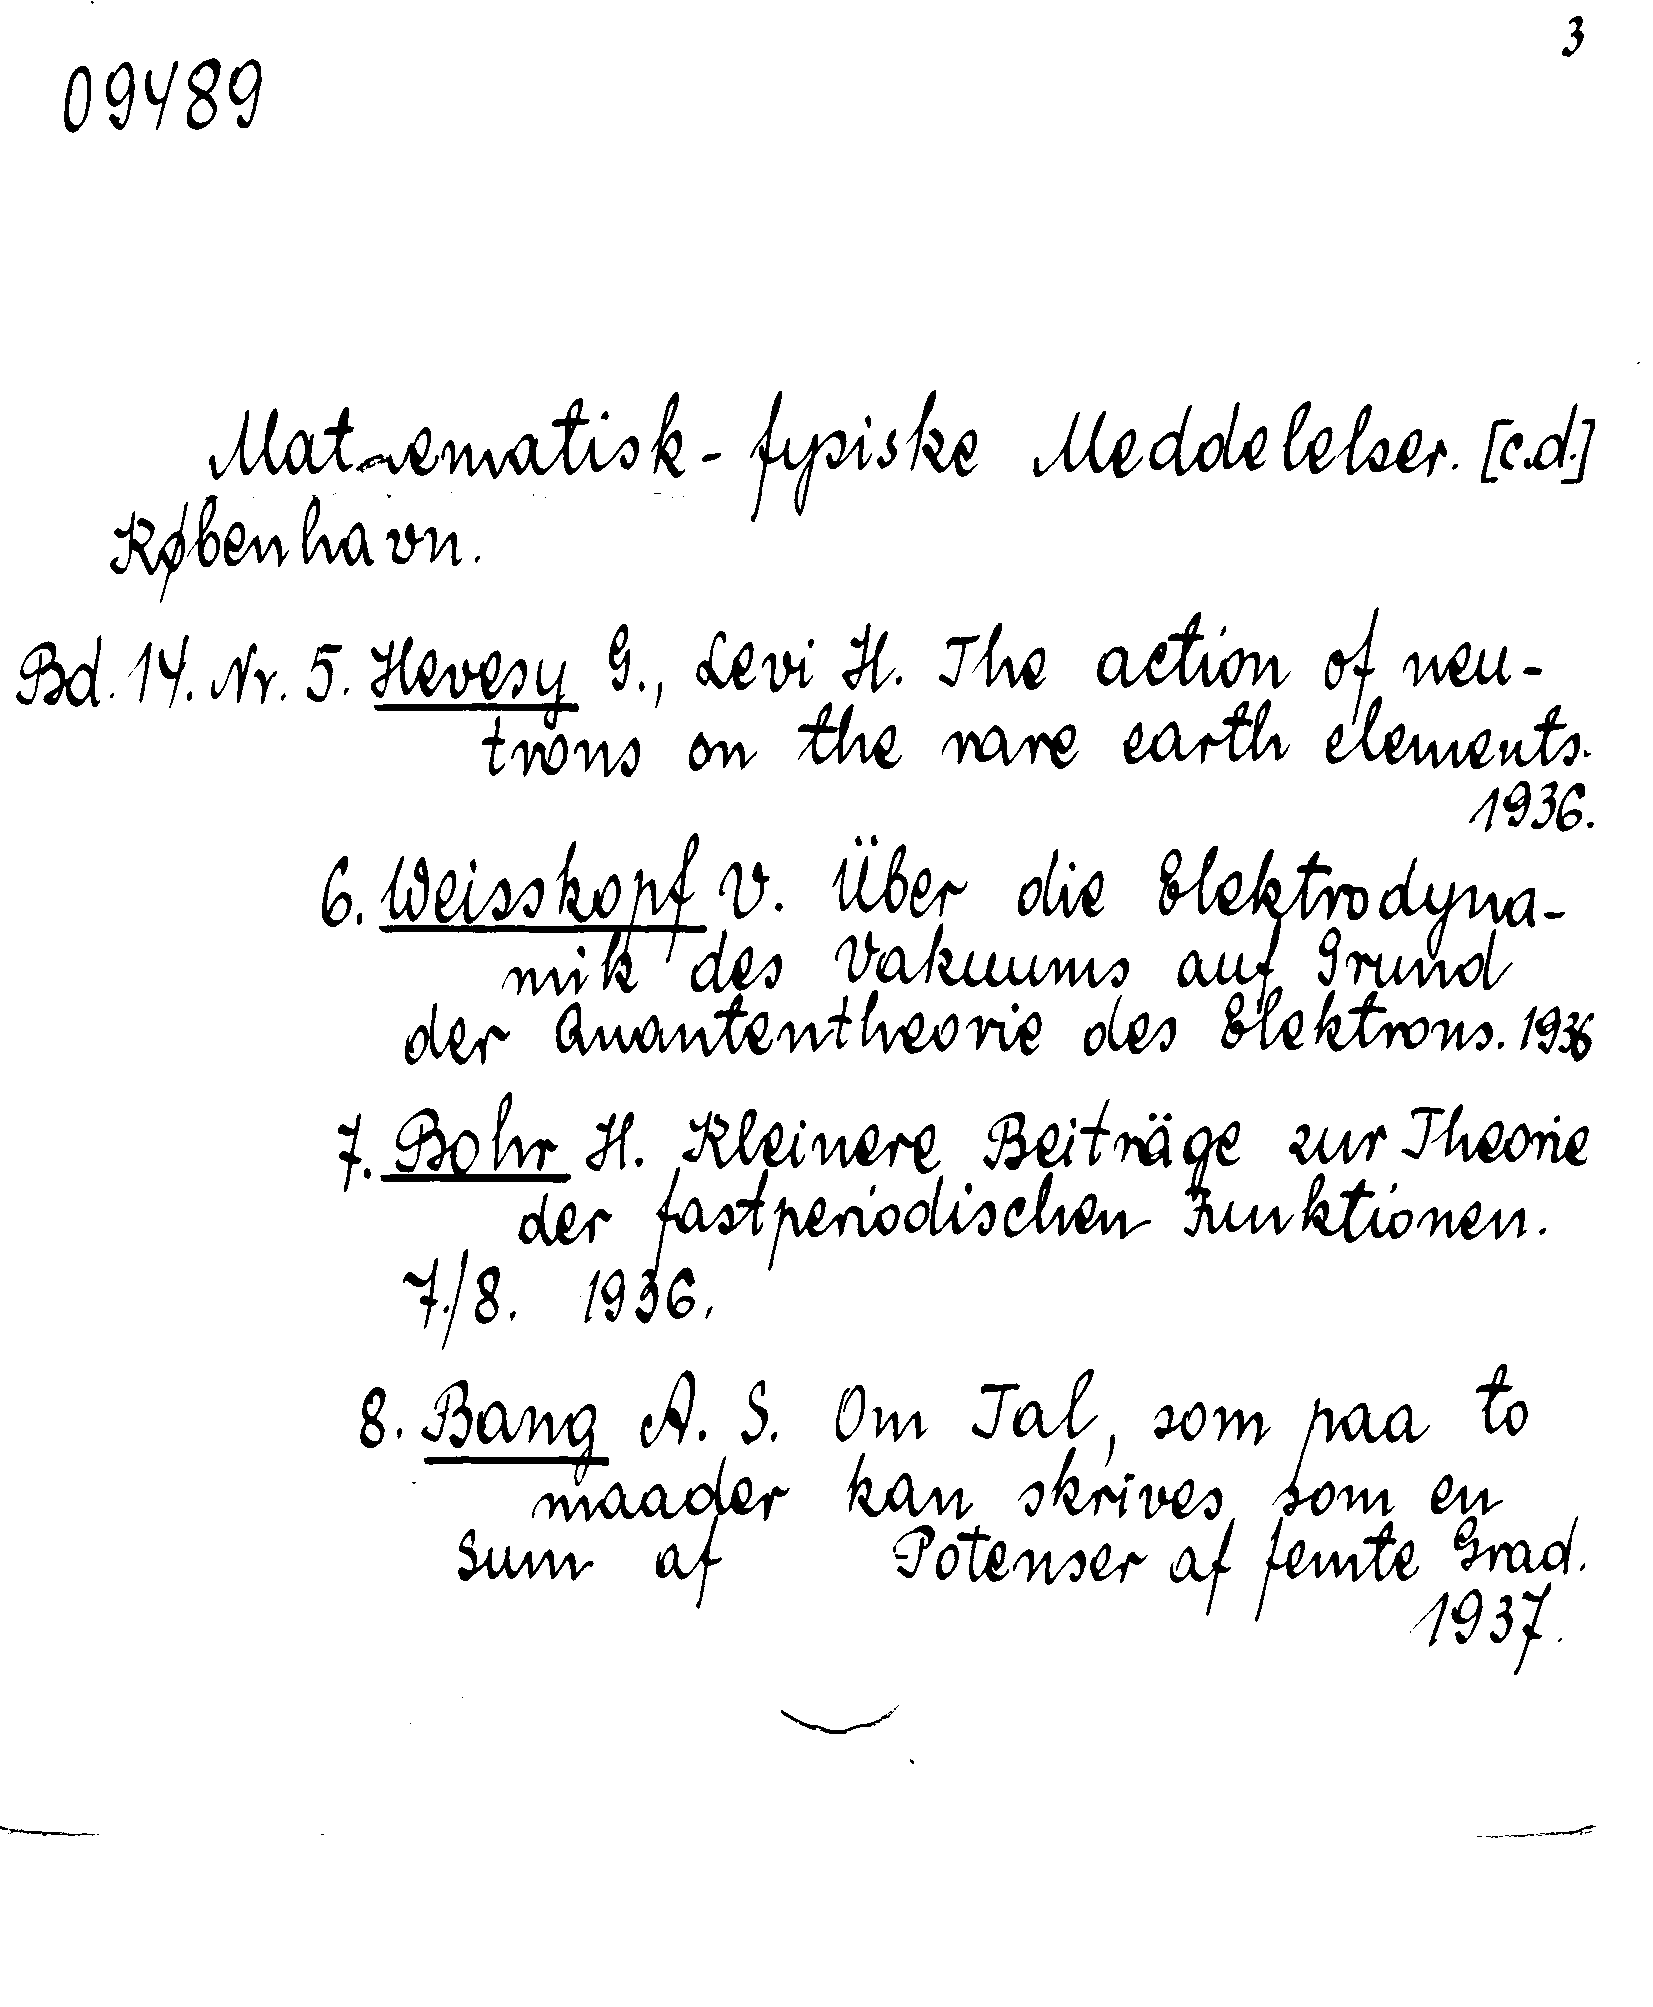 3
09489
Matematisk-fysiske Meddelelser. [c.d.]
København.
Bd. 14. Nr. 5. Hevesy G., Levi H. The action of neu-
trons on the rare earth elements.
1936.
6. Weisskopf V. Über die Elektrodyna-
mik des Vakuums auf Grund
der Quantentheorie des Elektrons. 1936
7. Bohr H. Kleinere Beiträge zur Theorie
der fastperiodischen Funktionen.
7./8. 1936.
8. Bang A. S. Om Tal, som paa to
maader kan skrives som en
Sum af Potenser af femte Grad.
1937.